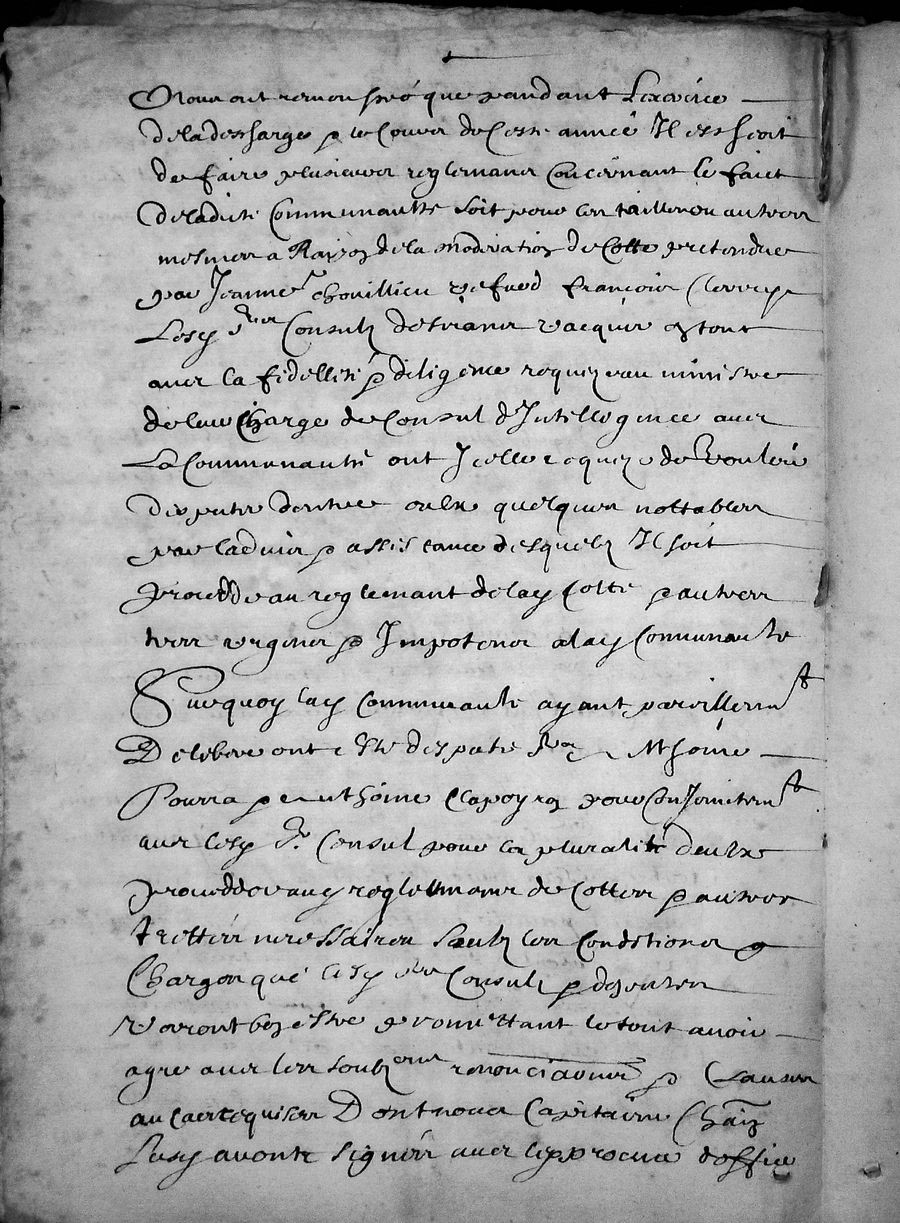 Nous ont remonstré que pandant L'exercice
de la descharge & le Cours de Ceste année Il escheoit
de faire plusieurs reglemans Concernant le faict
de ladite Communaulté soit pour les tailles ou autres
mesmes a Raison de la moderation de Cotte pretendue
par Jeanne Chouillieu vefve de françois
Lesd sieurs Consulz desirans vacquer en tout
avec la fidellité & diligence requize au ministre
de leur Charge de Consul d'Intelligence avec
La Communauté ont Icelle requize de Vouloir
desputer d'entre eulx quelques nottables
par l'advis & assistance desquelz Il soit
procedde au reglemant de lad Cotte & autres
urgens & Impotens a lad Communaulté
Surquoy lad Communaulté ayant pareillemt
Deliberé ont esté desputés Mr Anthoine
Pourra & Anthoine Clapeyron pour Conjoinctemt
avec lesd Srs Consul pour la pluralité d'eulx
procedder aud reglemans de Cottes & autres
necessaires Soubz les Conditions &
Charges que lesd srs Consulz & desputes
Verront bon estre promettant le tout avoir
agre avec les soubz renonciations & Clauses
au Cas requises Dont nous Capitaine Chain
Susd avons signés avec le procureur d'office